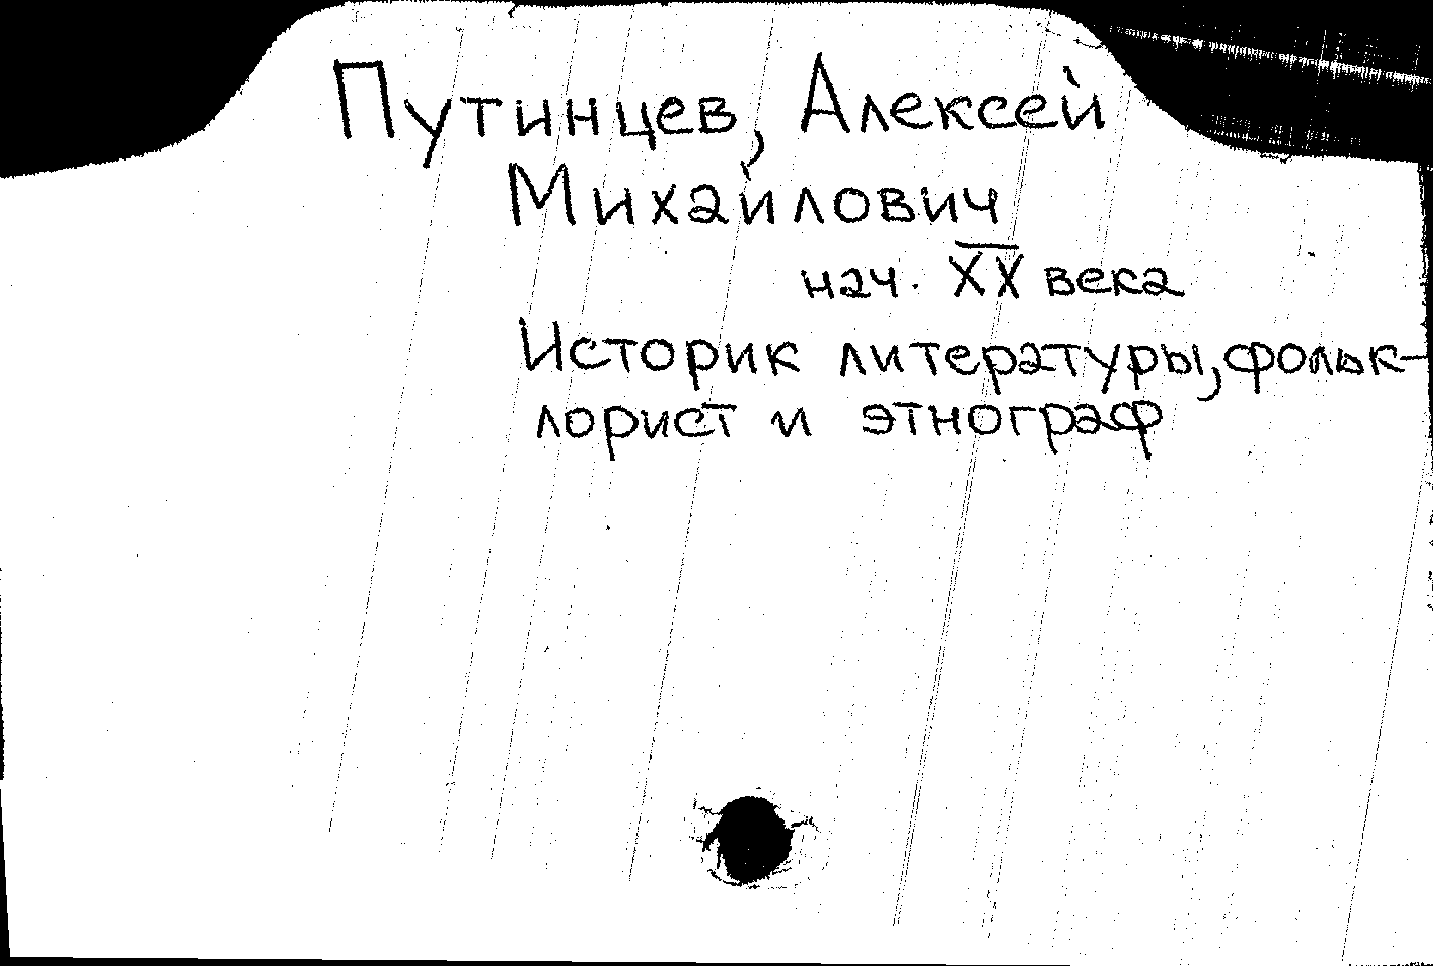 Путинцев, Алексей
Михайлович
нач. XX века
Историк литературы, фольк-
лорист и этнограф